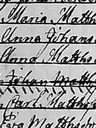 Maria Matth
Anna Johans
Anna Matths
Johan Matth
Karl Matths
Eva Matths